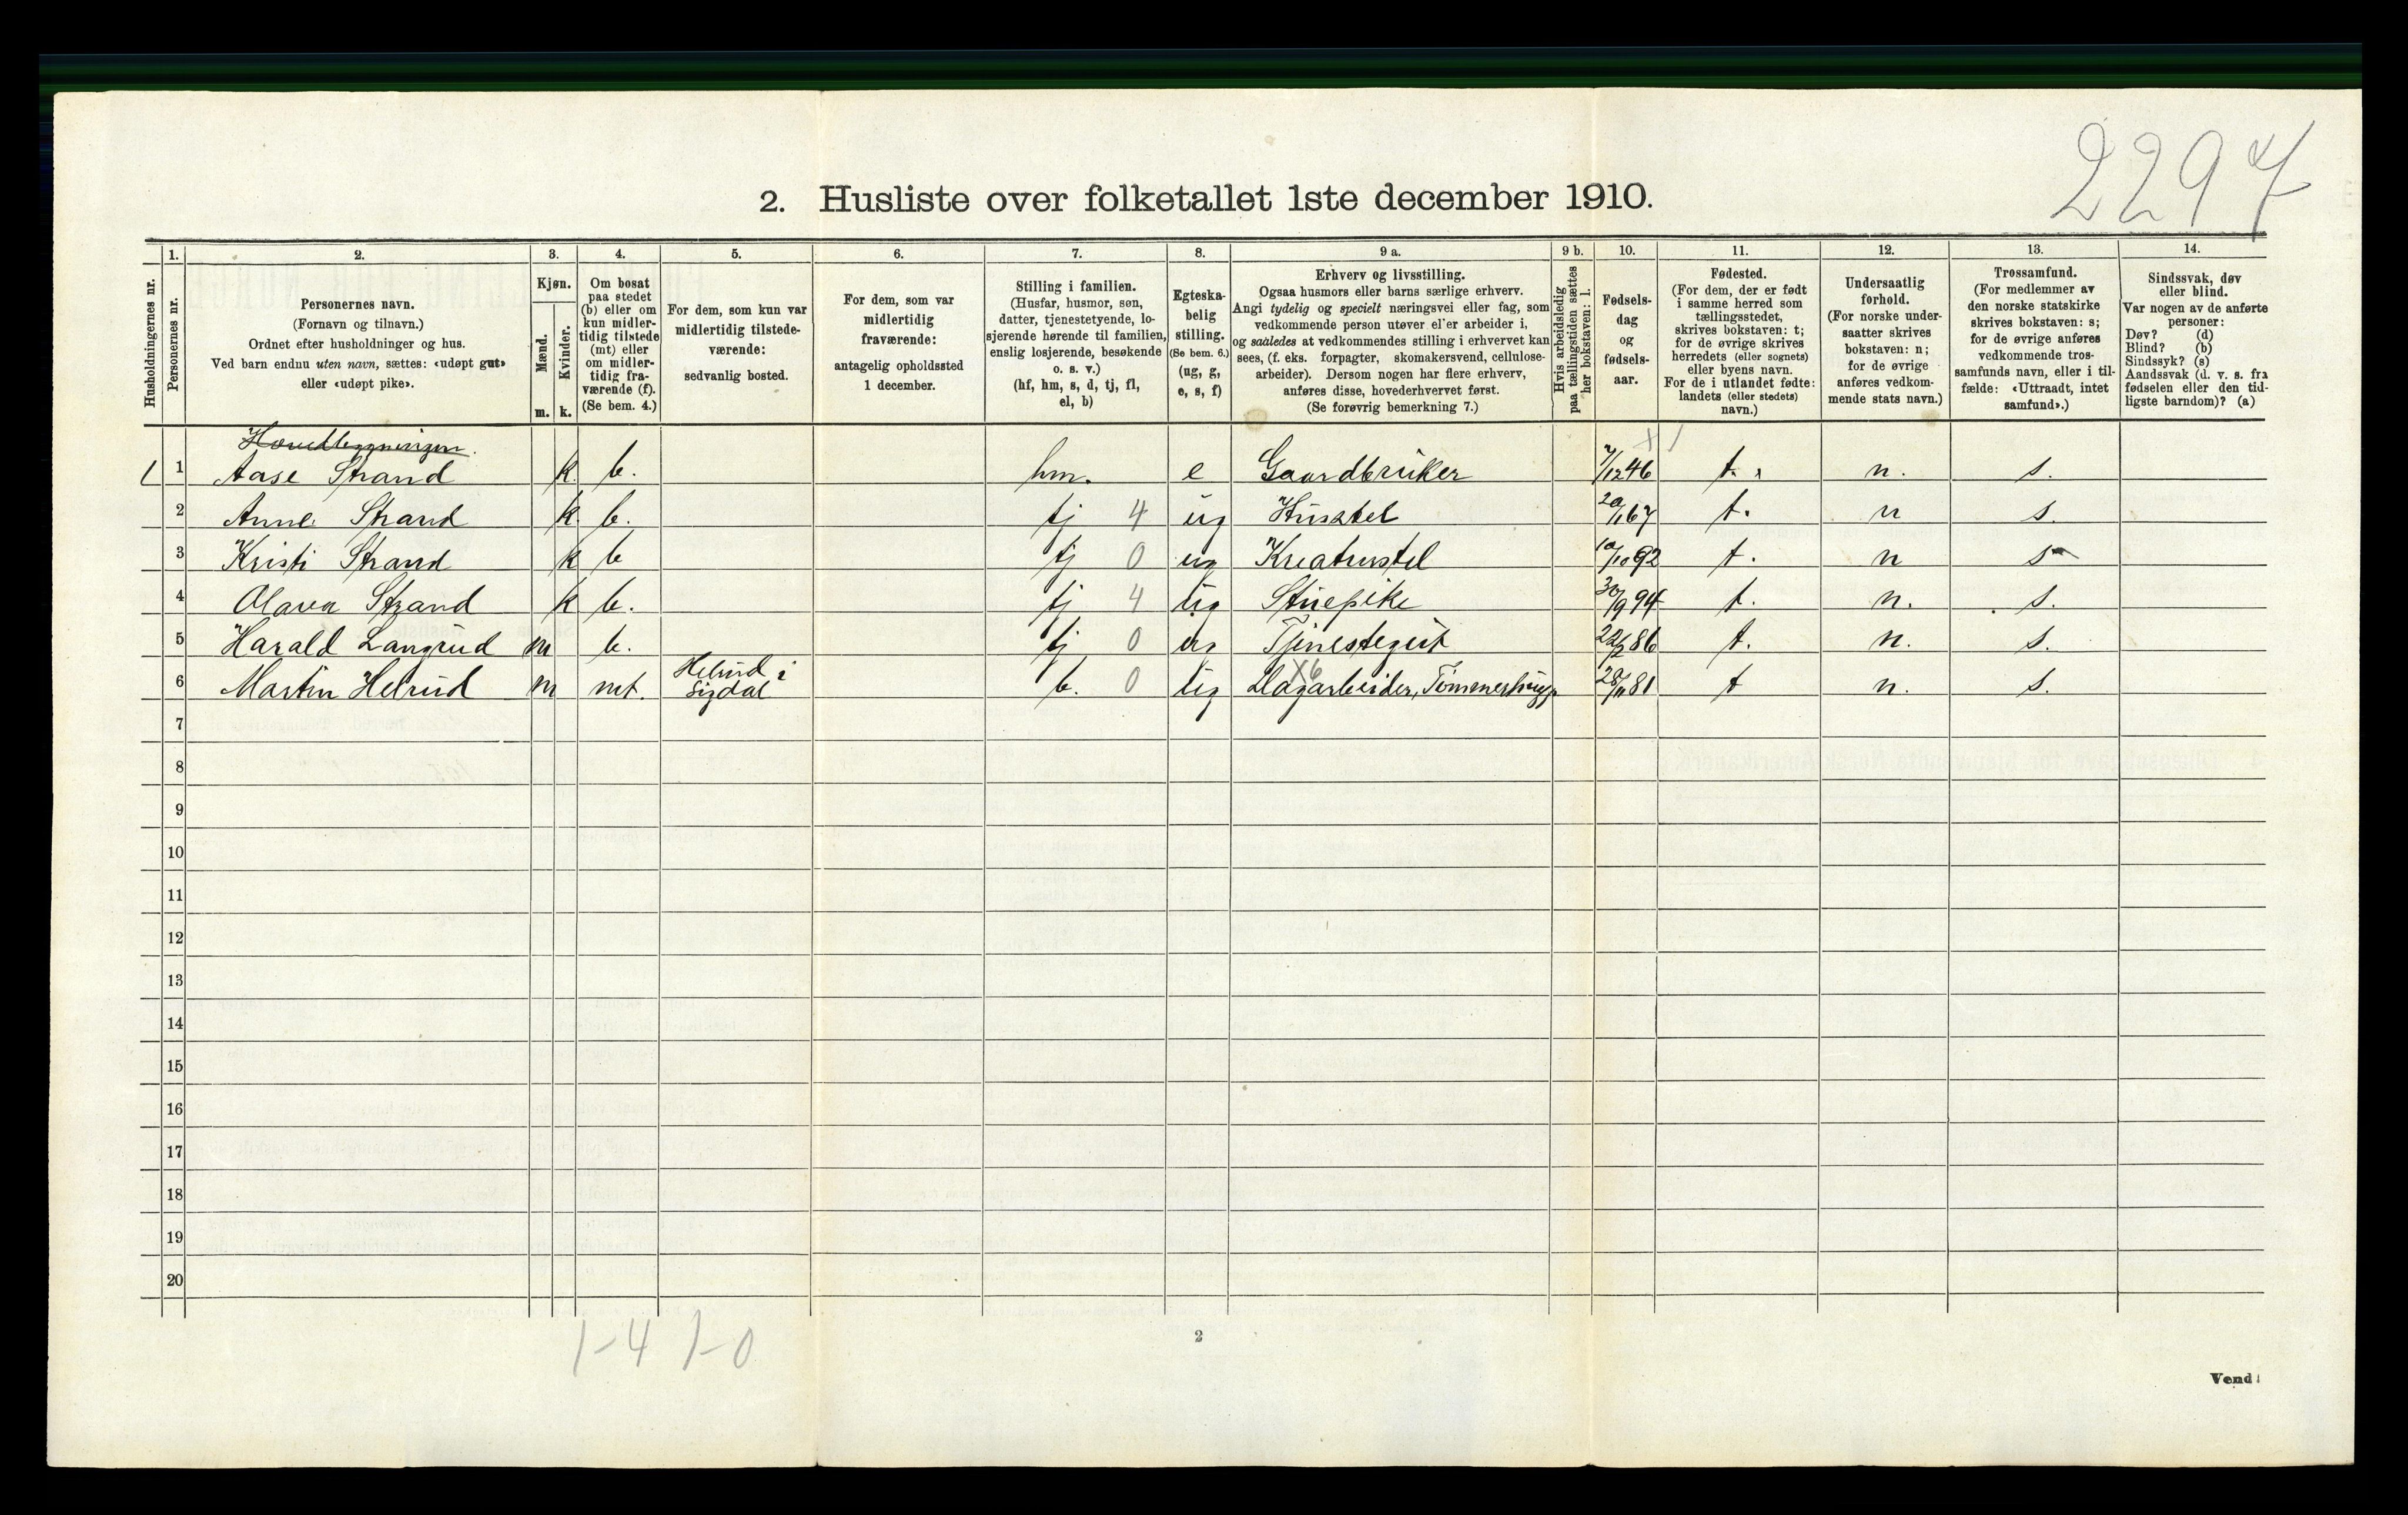 2297
2. Husliste over folketallet 1ste december 1910.
Husholdningernes nr.
1. Personernes nr.
2.
Personernes navn.
(Fornavn og tilnavn.)
Ordnet efter husholdninger og hus.
Ved barn endnu uten navn, sættes: «udøpt gut»
eller «udøpt pike».
3.
Kjøn.
Mænd.
m.
Kvinder.
k.
4.
Om bosat
paa stedet
(b) eller om
kun midler-
tidig tilstede
(mt) eller
om midler-
tidig fra-
værende (f).
(Se bem. 4.)
5.
For dem, som kun var
midlertidig tilstede-
værende:
sedvanlig bosted.
6.
For dem, som var
midlertidig
fraværende:
antagelig opholdssted
1 december.
7.
Stilling i familien.
(Husfar, husmor, søn,
datter, tjenestetyende, lo-
sjerende hørende til familien,
enslig losjerende, besøkende
o. s. v.)
(hf, hm, s, d, tj, fl,
el, b)
8.
Egteska-
belig
stilling.
(Se bem. 6.)
(ug, g,
e, s, f)
9 a.
Erhverv og livsstilling.
Ogsaa husmors eller barns særlige erhverv.
Angi tydelig og specielt næringsvei eller fag, som
vedkommende person utøver el'er arbeider i,
og saaledes at vedkommendes stilling i erhvervet kan
sees, (f. eks. forpagter, skomakersvend, cellulose-
arbeider). Dersom nogen har flere erhverv,
anføres disse, hovederhvervet først.
(Se forøvrig bemerkning 7.)
9 b.
Hvis arbeidsledig
paa tællingstiden sættes
her bokstaven: l.
10.
Fødsels-
dag
og
fødsels-
aar.
11.
Fødested.
(For dem, der er født
i samme herred som
tællingsstedet,
skrives bokstaven: t;
for de øvrige skrives
herredets (eller sognets)
eller byens navn.
For de i utlandet fødte:
landets (eller stedets)
navn.)
12.
Undersaatlig
forhold.
(For norske under-
saatter skrives
bokstaven: n;
for de øvrige
anføres vedkom-
mende stats navn.)
13.
Trossamfund.
(For medlemmer av
den norske statskirke
skrives bokstaven: s;
for de øvrige anføres
vedkommende tros-
samfunds navn, eller i til-
fælde: «Uttraadt, intet
samfund».)
14.
Sindssvak, døv
eller blind.
Var nogen av de anførte
personer:
Døv? (d)
Blind? (b)
Sindssyk? (s)
Aandssvak (d. v. s. fra
fødselen eller den tid-
ligste barndom)? (a)
Hovedbygningen.
1 1 Aase Strand k. b. hm. e Gaardbruker 7/12 46 t. n. s.
2 Anne Strand k. b. tj 4 ug Husstel 20/1 67 t. n s.
3 Kristi Strand k b tj 0 ug Kreaturstel 10/10 92 t. n s
4 Olava Strand k b. tj 4 ug Stuepike 30/9 94 t. n. s.
5 Harald Langrud m b. tj 0 ug Tjenestegut 22/2 86 t. n. s.
6 Martin Helrud m mt. Helrud i Sigdal b. 0 ug Dagarbeider, Tømmerhugg X6 28/11 81 t n. s.
7
8
9
10
11
12
13
14
15
16
17
18
19
20
1-4 1-0
2
Vend!